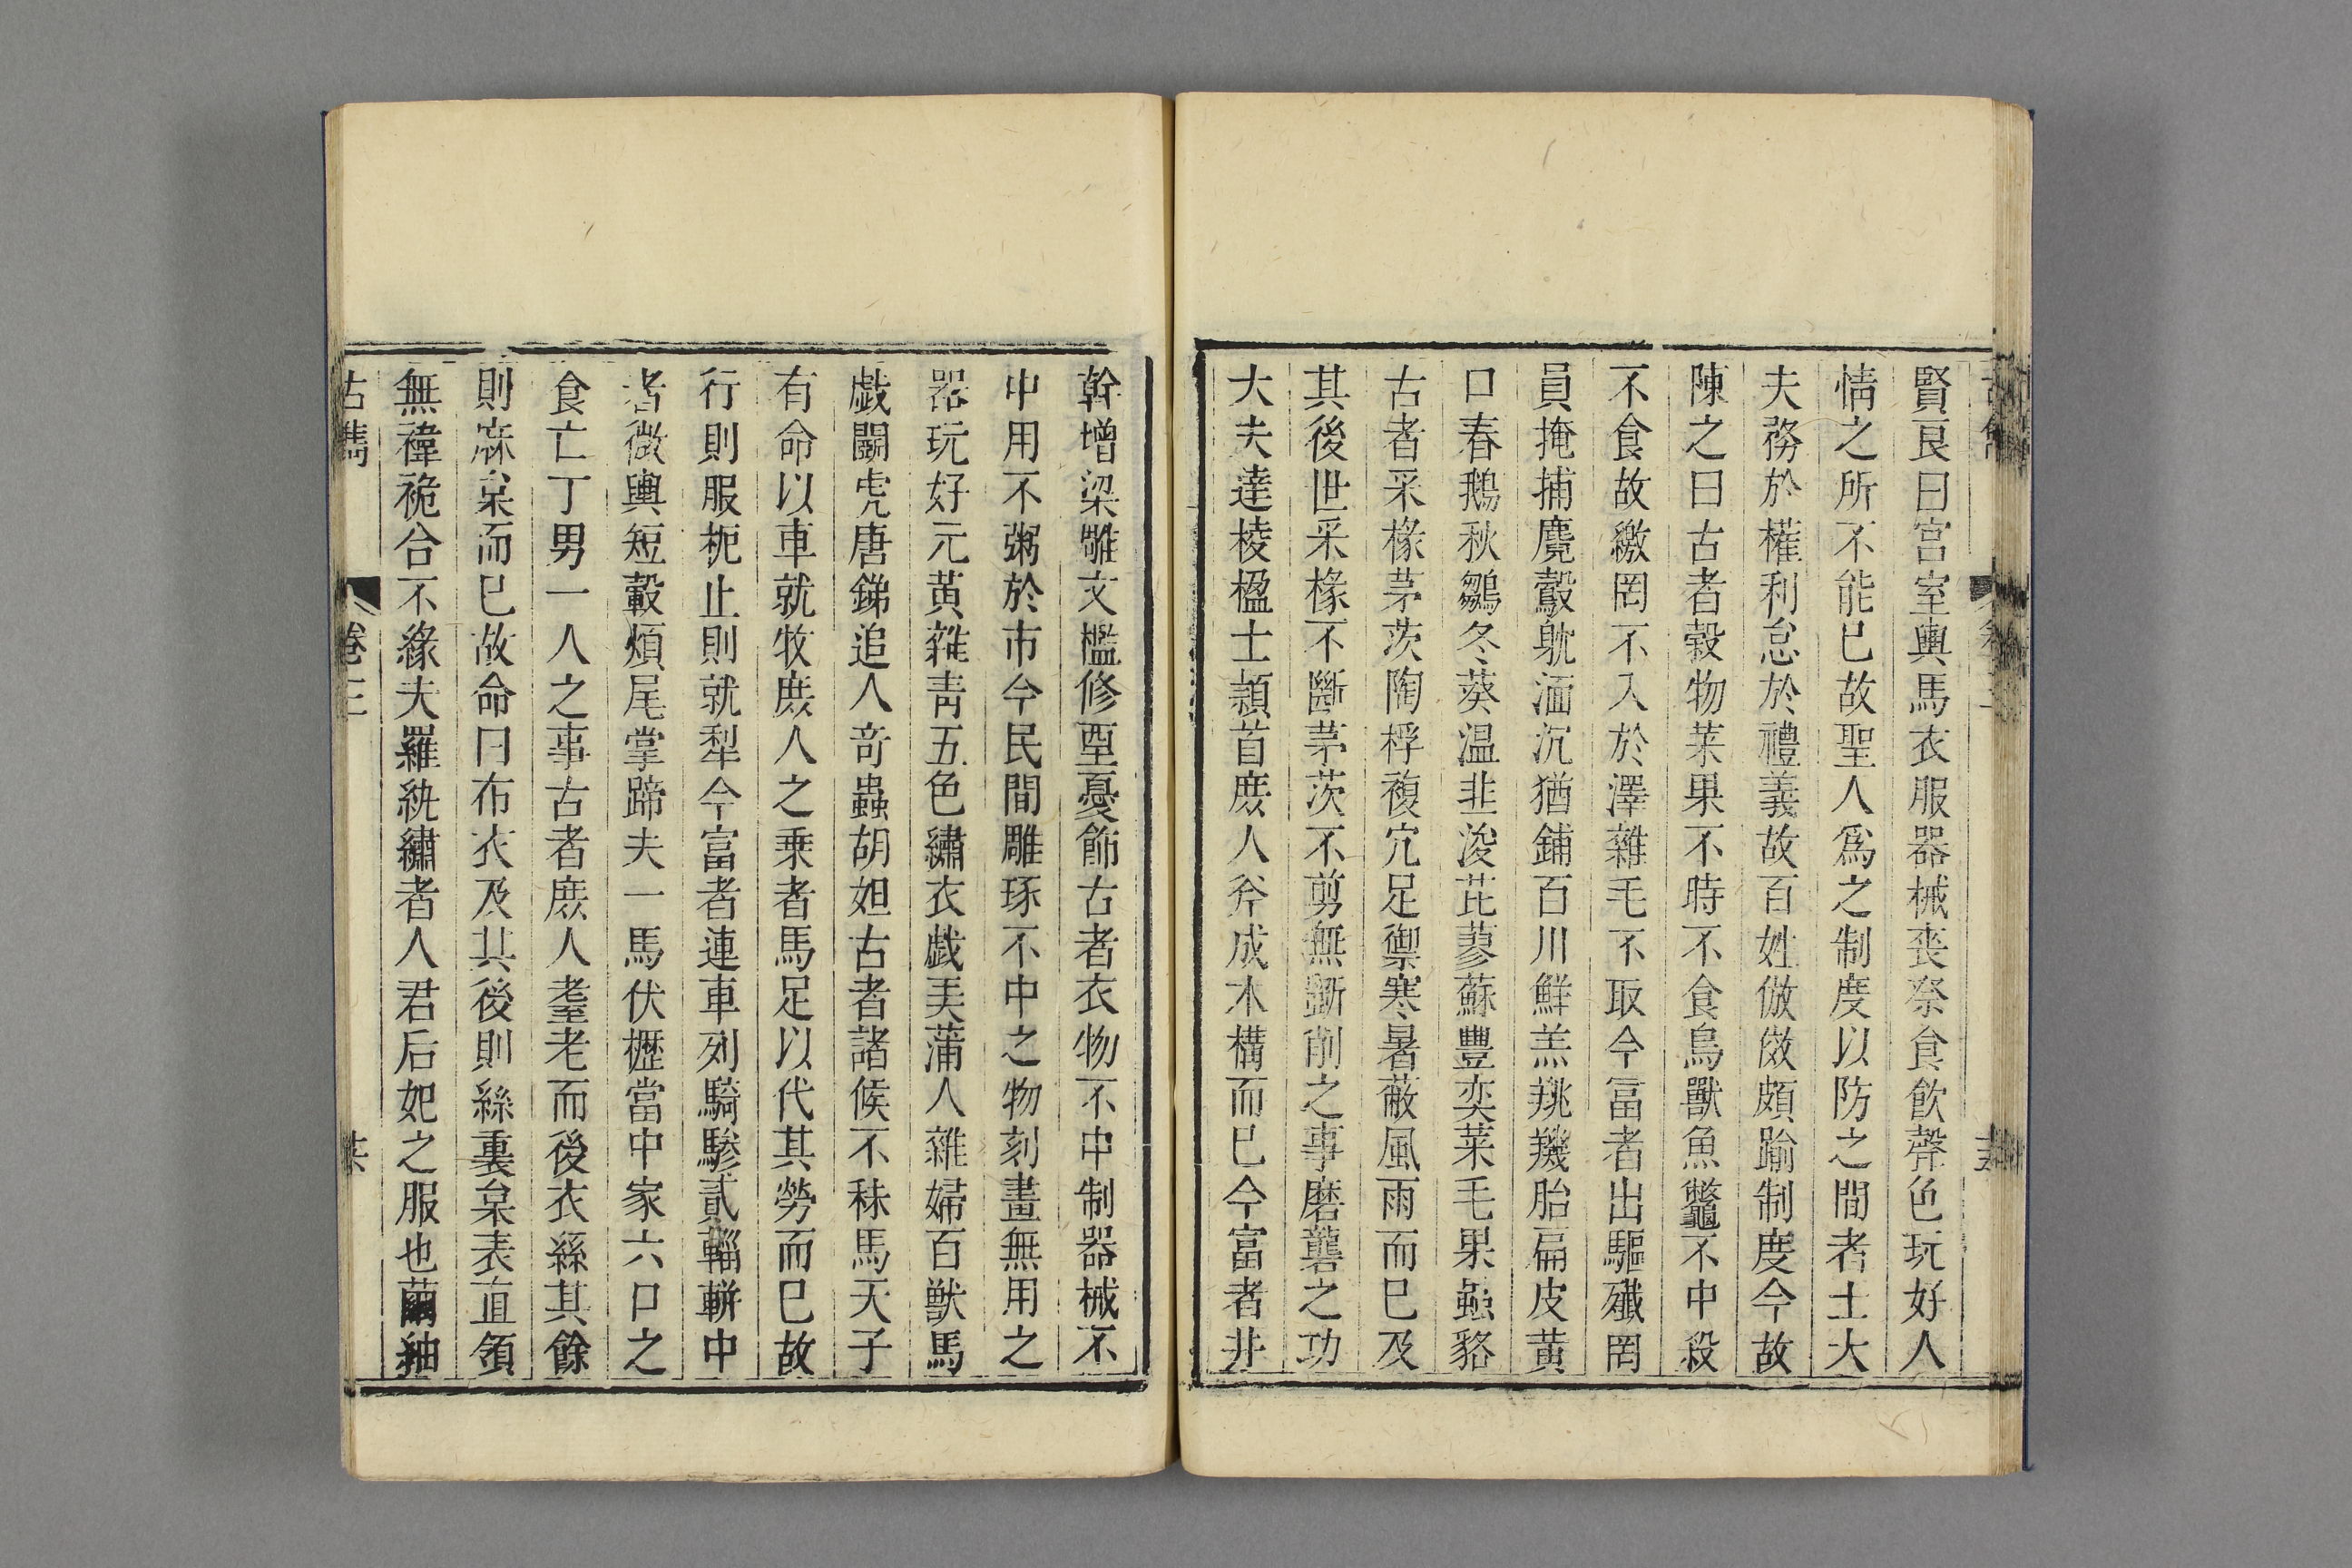 賢良曰宮室輿馬衣服器械喪祭食飮聲色玩好人
情之所不能已故聖人爲之制度以防之間者士大
夫務於權利怠於禮義故百姓倣傚頗踰制度今故
陳之曰古者穀物菜果不時不食鳥獸魚鼈不中殺
不食故繳罔不入於澤雜毛不取今冨者出驅殲罔
員掩捕麑鷇躭湎沉猶鋪百川鮮羔𦍩䵷胎扁皮黄
口春鵝秋鶵冬葵温韭浚茈蓼蘇豐奕菜毛果蟲貉
古者采椽茅茨陶桴複穴足禦寒暑蔽風雨而已及
其後世采椽不斷茅茨不剪無斵削之事磨礱之功
大夫達棱楹士頴首庶人斧成木構而已今富者井
幹增梁雕文檻修堊憂飾古者衣物不中制器械不
中用不粥於市今民間雕琢不中之物刻畫無用之
器玩好元黄雜青五色繡衣戯芺蒲人雜婦百獸馬
戯鬭虎唐銻追人奇蟲胡妲古者諸候不秣馬天子
有命以車就牧庶人之乗者馬足以代其勞而已故
行則服枙止則就犁今富者連車列騎驂貳輜軿中
者微輿短轂煩尾掌蹄夫一馬伏櫪當中家六口之
食亡丁男一人之事古者庶人耋老而後衣絲其餘
則㾕枲而已故命曰布衣及其後則絲裏枲表直領
無褘袘合不緣夫羅紈繡者人君后妃之服也繭紬
古雋 卷三